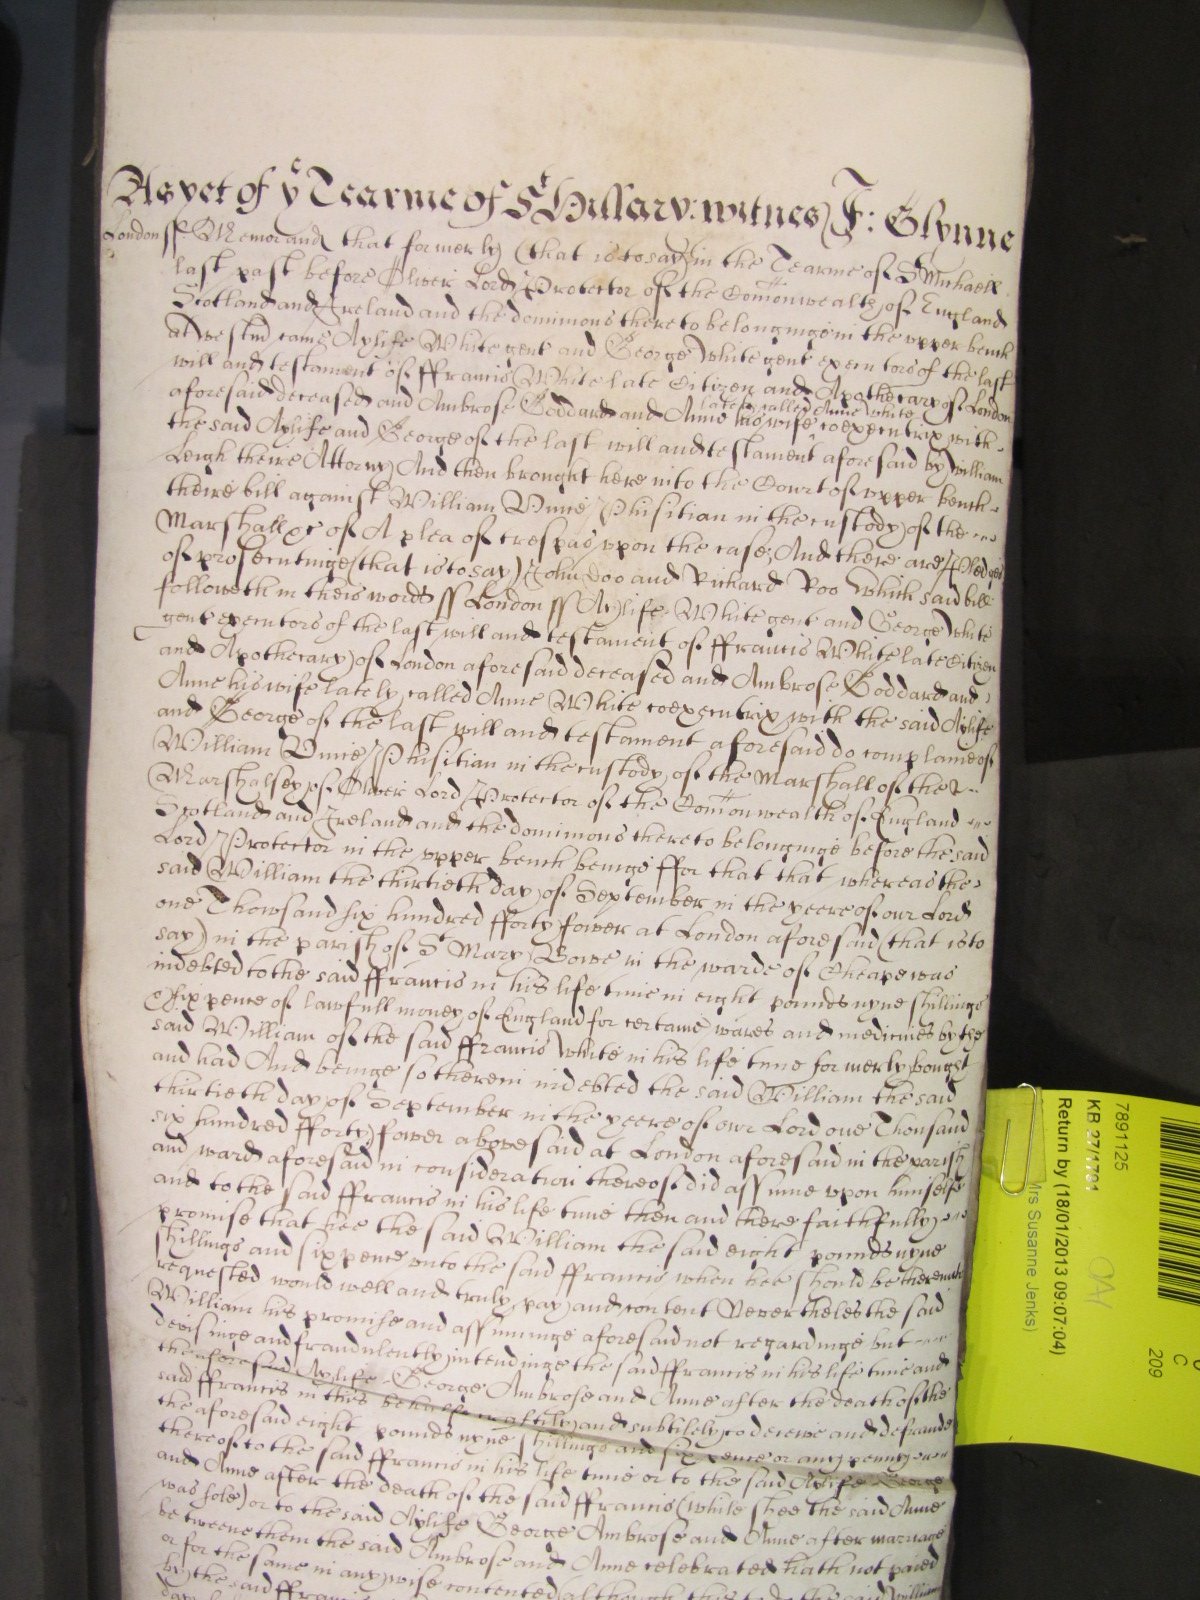 As yet of ye Tearme of St Hillary: witnes J: Glynne
London ss. Memorand that formerly (that is to say) in the Tearme of St Michaell
last past before Oliver Lord Protector of the Comonwealth of England
Scotland and Ireland and the dominions thereto belonginge in the upper bench
at westm came Aylife White gent and George White gent executors of the last
will and testament of ffrancis White late Citizen and Apothecary of London
aforesaid deceased and Ambrose Goddard and Anne his wife lately called Anne White coexecutrix with
the said Aylife and George of the last will and testament aforesaid by William
Leigh theire Attorny And then brought here into the Court of upper bench
theire bill against William Vince Phisitian in the custody of the
Marshall &c of A plea of trespas uppon the case, And there are Pledges
of prosecutinge (that is to say) John Doo and Richard Roo Which said bill
followeth in theis words ss London ss Aylife White gent and George White
gent executors of the last will and testament of ffrancis White late Citizen
and Apothecary of London aforesaid deceased and Ambrose Goddard and
Anne his wife lately called Anne White coexecutrix with the said Aylife
and George of the last will and testament aforesaid do complaine of
William Vince Phisitian in the custody of the Marshall of the
Marshalsey of Oliver Lord Protector of the Comonwealth of England
Scotland and Ireland and the dominions thereto belonginge before the said
Lord Protector in the upper bench beinge ffor that that whereas the
said William the thirtieth day of September in the yeere of our Lord
one Thowsand six hundred fforty fower at London aforesaid (that is to
say) in the parish of St Mary Bowe in the warde of Cheape was
indebted to the said ffrancis in his life time in eight pounds nyne shillings
& six pence of lawfull money of England for certaine wares and medicines by the
said William of the said ffrancis White in his life time formerly bought
and had And beinge so therein indebted the said William the said
thirtieth day of September in the yeere of our Lord one Thousand
six hundred fforty fower abovesaid at London aforesaid in the parish
and ward aforesaid in consideration thereof did assume upon himselfe
and to the said ffrancis in his life time then and there faithfully
promise that hee the said William the said eight pounds nyne
shillings and six pence unto the said ffrancis when hee should be thereunto
requested would well and truly pay and content Neverthelesse the said
William his promise and assuminge aforesaid not regardinge but
devisinge and fraudulently intendinge the said ffrancis in his life time and
the aforesaid Aylife George Ambrose and Anne after the death of the
said ffrancis in this behalfe craftily and subtilely to deceive and defraude
the aforesaid eight pounds nyne shillings and six pence or any penny
thereof to the said ffrancis in his life time or to the said Aylife George
and Anne after the death of the said ffrancis (while shee the said Anne
was sole) or to the said Aylife George Ambrose and Anne after marriage
betweene them the said Ambrose and Anne celebrated hath not paied
or for the same in any wise contented although the said William
by the said ffrancis
7891125
KB 27/1791
Return by (18/01/2013 09:07:04)
Mrs Susanne Jenks)
C
209